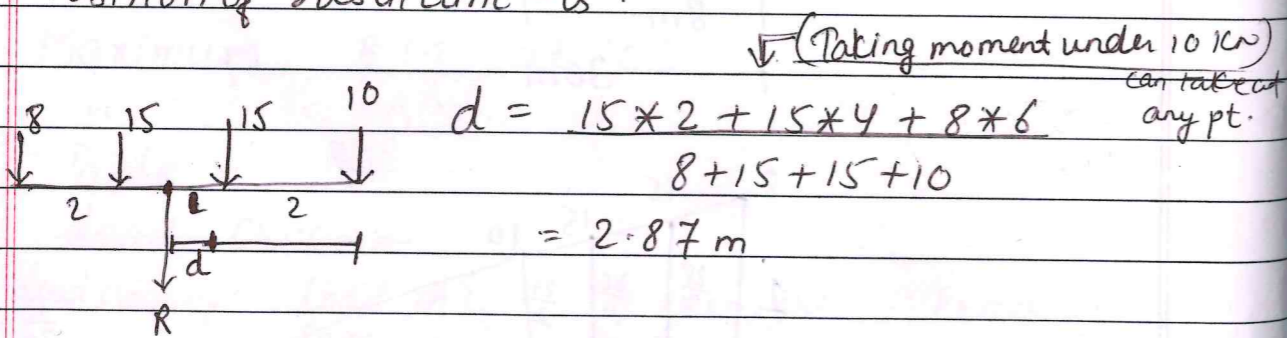 is
(Taking moment under 10 KN)
can take at
any pt.
8 15 15 10
d = 15*2+15*4+8*6
8+15+15+10
= 2.87 m
2 2
d
R